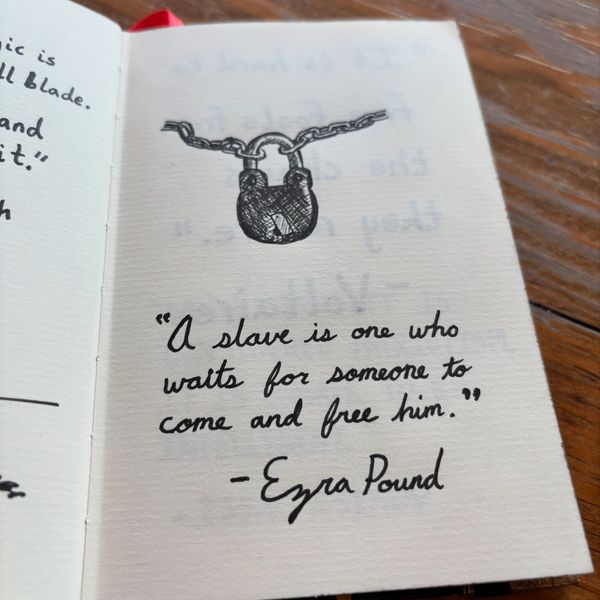 ic is
ll blade.
and
it."
h
"A slave is one who
waits for someone to
come and free him."
- Ezra Pound